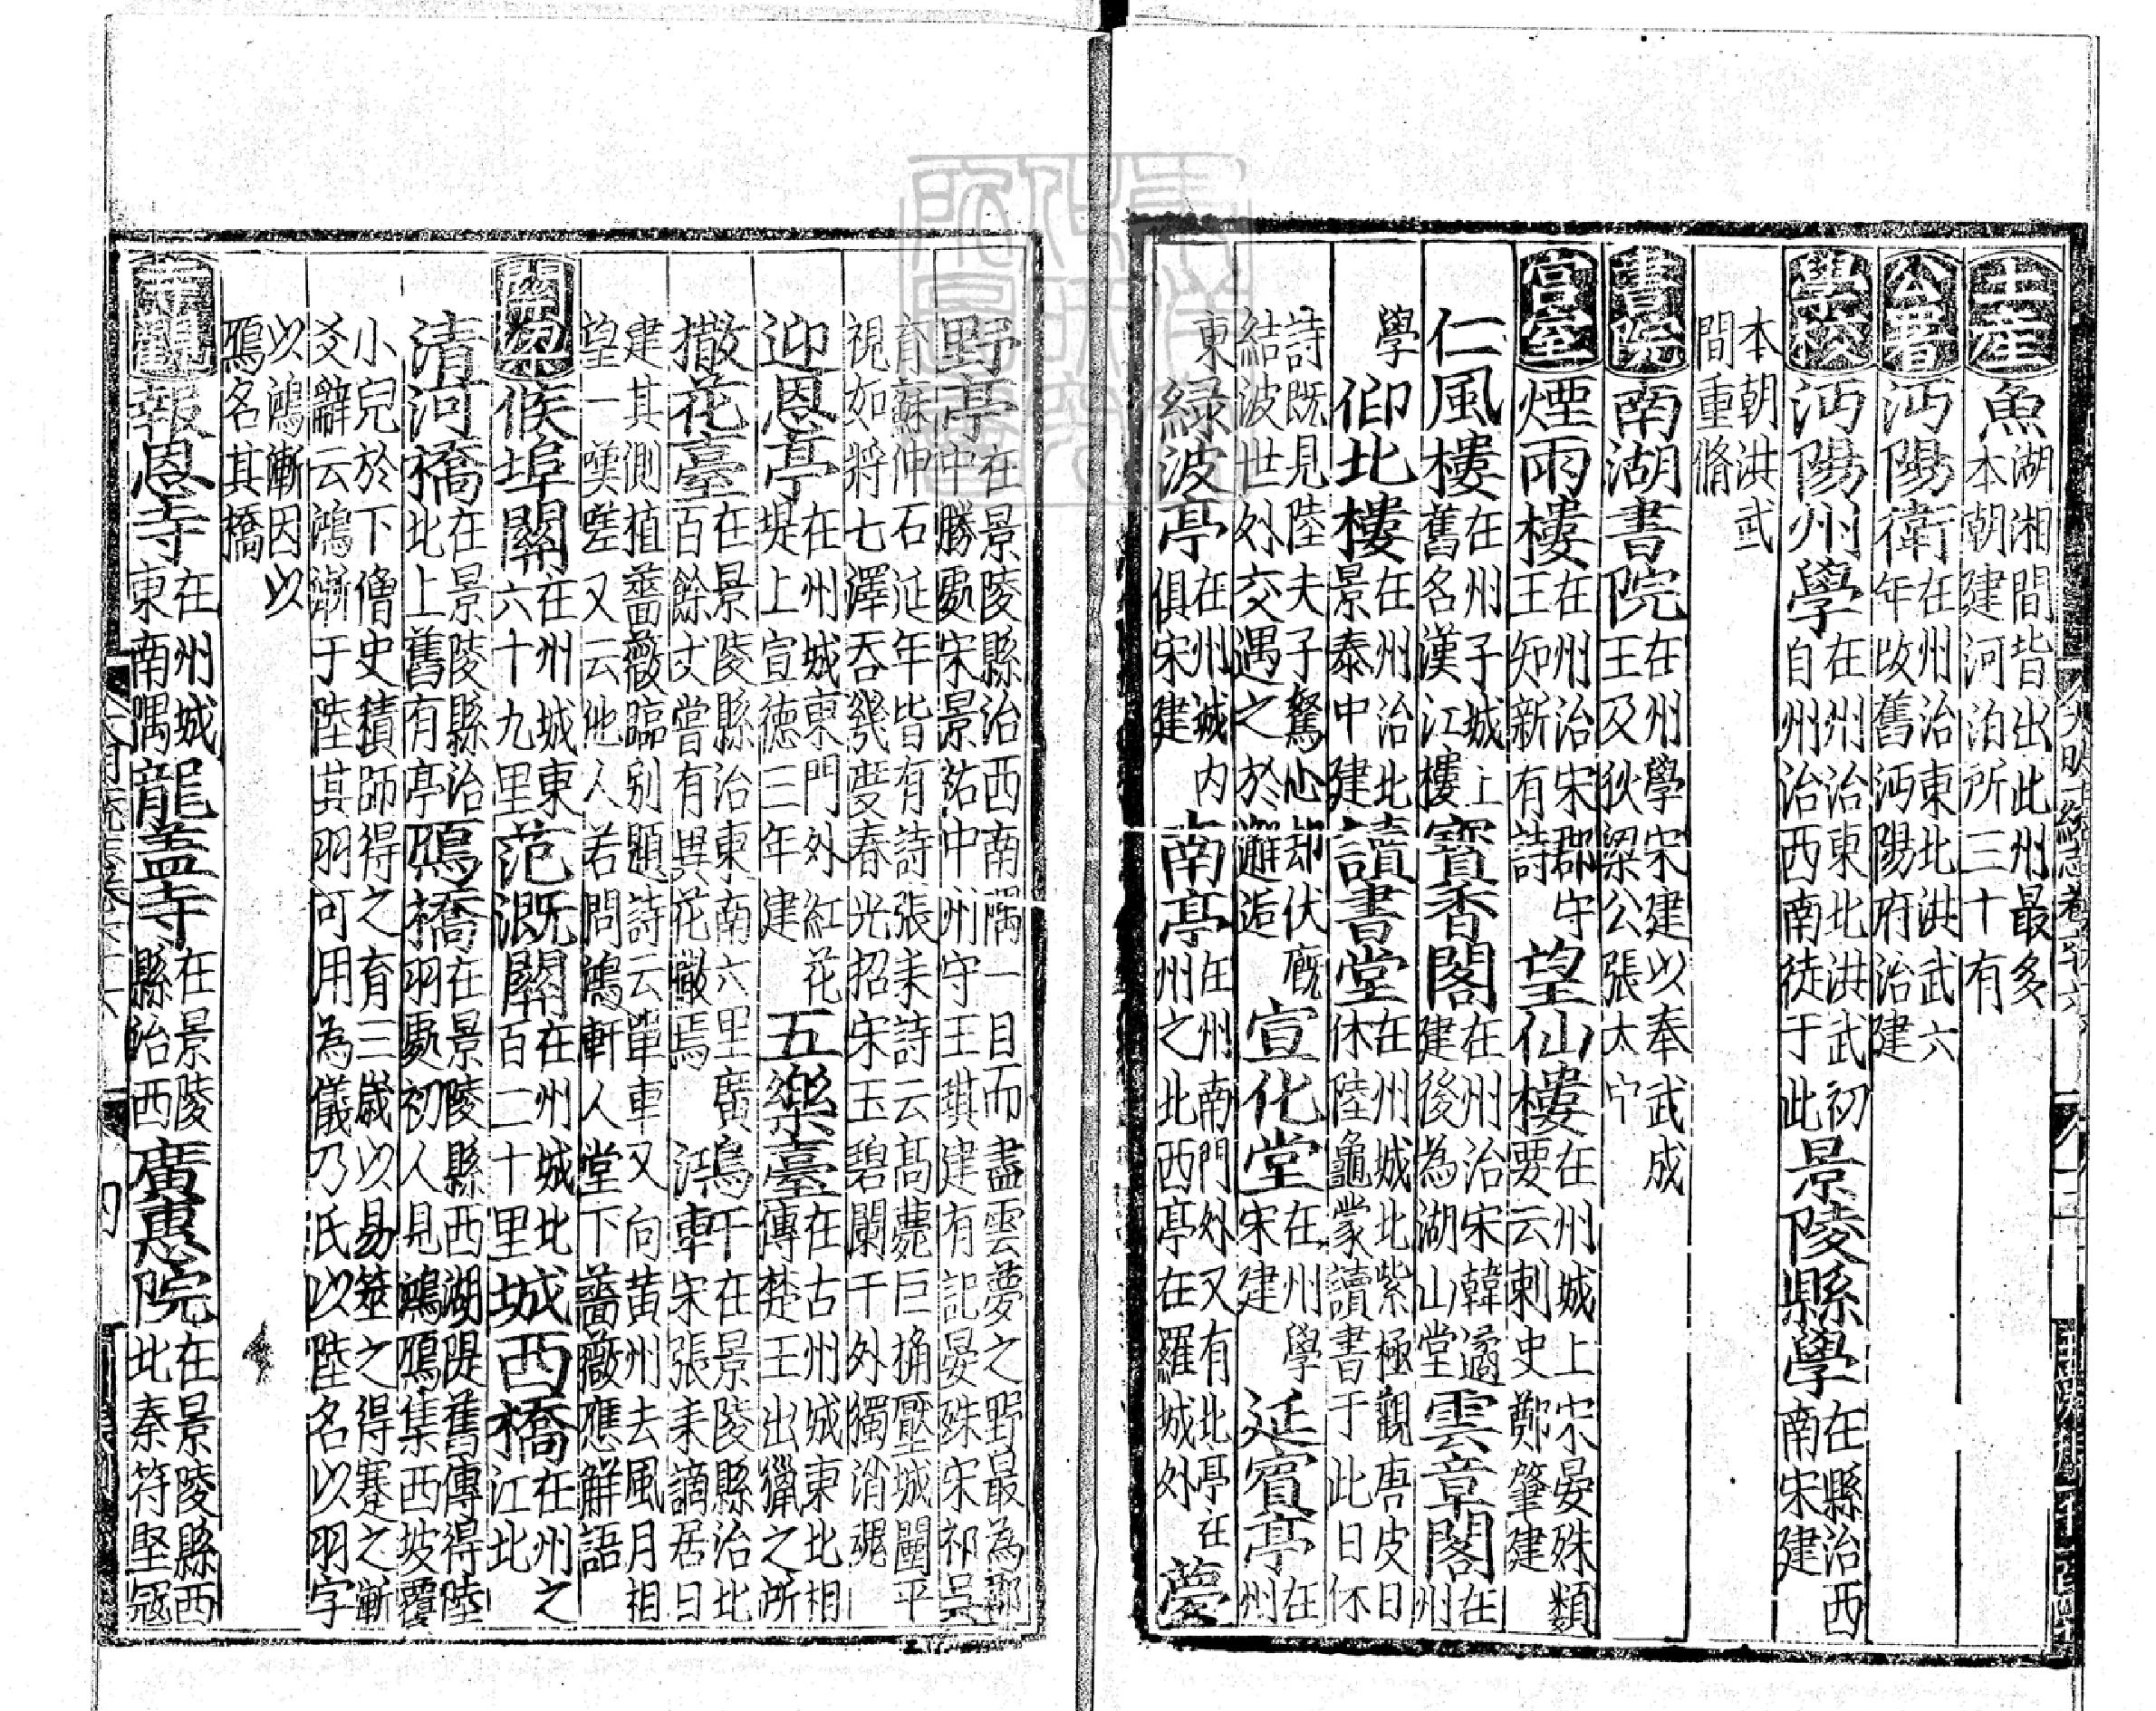 土産 魚 湖湘間皆出此州最多 本朝建河泊所三十有
公署 沔陽衛 在州治東北洪武六年改舊沔陽府治建
學校 沔陽州學 在州治東北洪武初自州治西南徒于此 景陵縣學 在縣治西南宋建
本朝洪武間重脩
書院 南湖書院 在州學宋建以奉武成王及狄梁公張太宁
宫室 煙雨樓 在州治宋郡守王知新有詩 望仙樓 在州城上宋晏殊類要云刺史鄭肇建
仁風樓 在州子城上舊名漢江樓 寳香閣 在州治宋韓遹建後為湖山堂 雲章閣 在州
學 仰北樓 在州治北景泰中建 讀書堂 在州城北紫極觀唐皮日休陸龜蒙讀書于此日休
詩既見陸夫子駑心却伏廐結波世外交遇之於邂逅 宣化堂 在州學宋建 延賓亭 在州
東 緑波亭 在州城内俱宋建 南亭 在州南門外又有北亭在州之北西亭在羅城外 夢
野亭 在景陵縣治西南隅一目而盡雲夢之野最為郡中勝處宋景祐中州守王琪建有記晏殊宋祁吳
育蘇伸石延年皆有詩張耒詩云髙薨巨桷壓城闉平視如將七澤吞幾度春光招宋玉碧闌干外獨消魂
迎恩亭 在州城東門外紅花堤上宣德三年建 五樂臺 在古州城東北相傳楚王出獵之所
散花臺 在景陵縣治東南六里廣百餘丈嘗有異花散焉 鴻軒 在景陵縣治北宋張耒謫居日
建其側植薔薇臨别題詩云單車又向黄州去風月相望一嘆嗟又云他人若問鴻軒人堂下薔薇應解語
關梁 候埠關 在州城東六十九里 范溉關 在州城北百二十里 城西橋 在州之江北
清河橋 在景陵縣治北上舊有亭 鴈橋 在景陵縣西湖隄舊傳得陸羽處初人見鴻鴈集西坡覆
小兒於下僧史積師得之育三歳以易筮之得蹇之漸爻辭云鴻漸于陸其羽可用為儀乃氏以陸名以羽字
以鴻漸因以鴈名其橋
寺觀 報恩寺 在州城東南隅 龍盖寺 在景陵縣治西 廣惠院 在景陵縣西北秦符堅冦